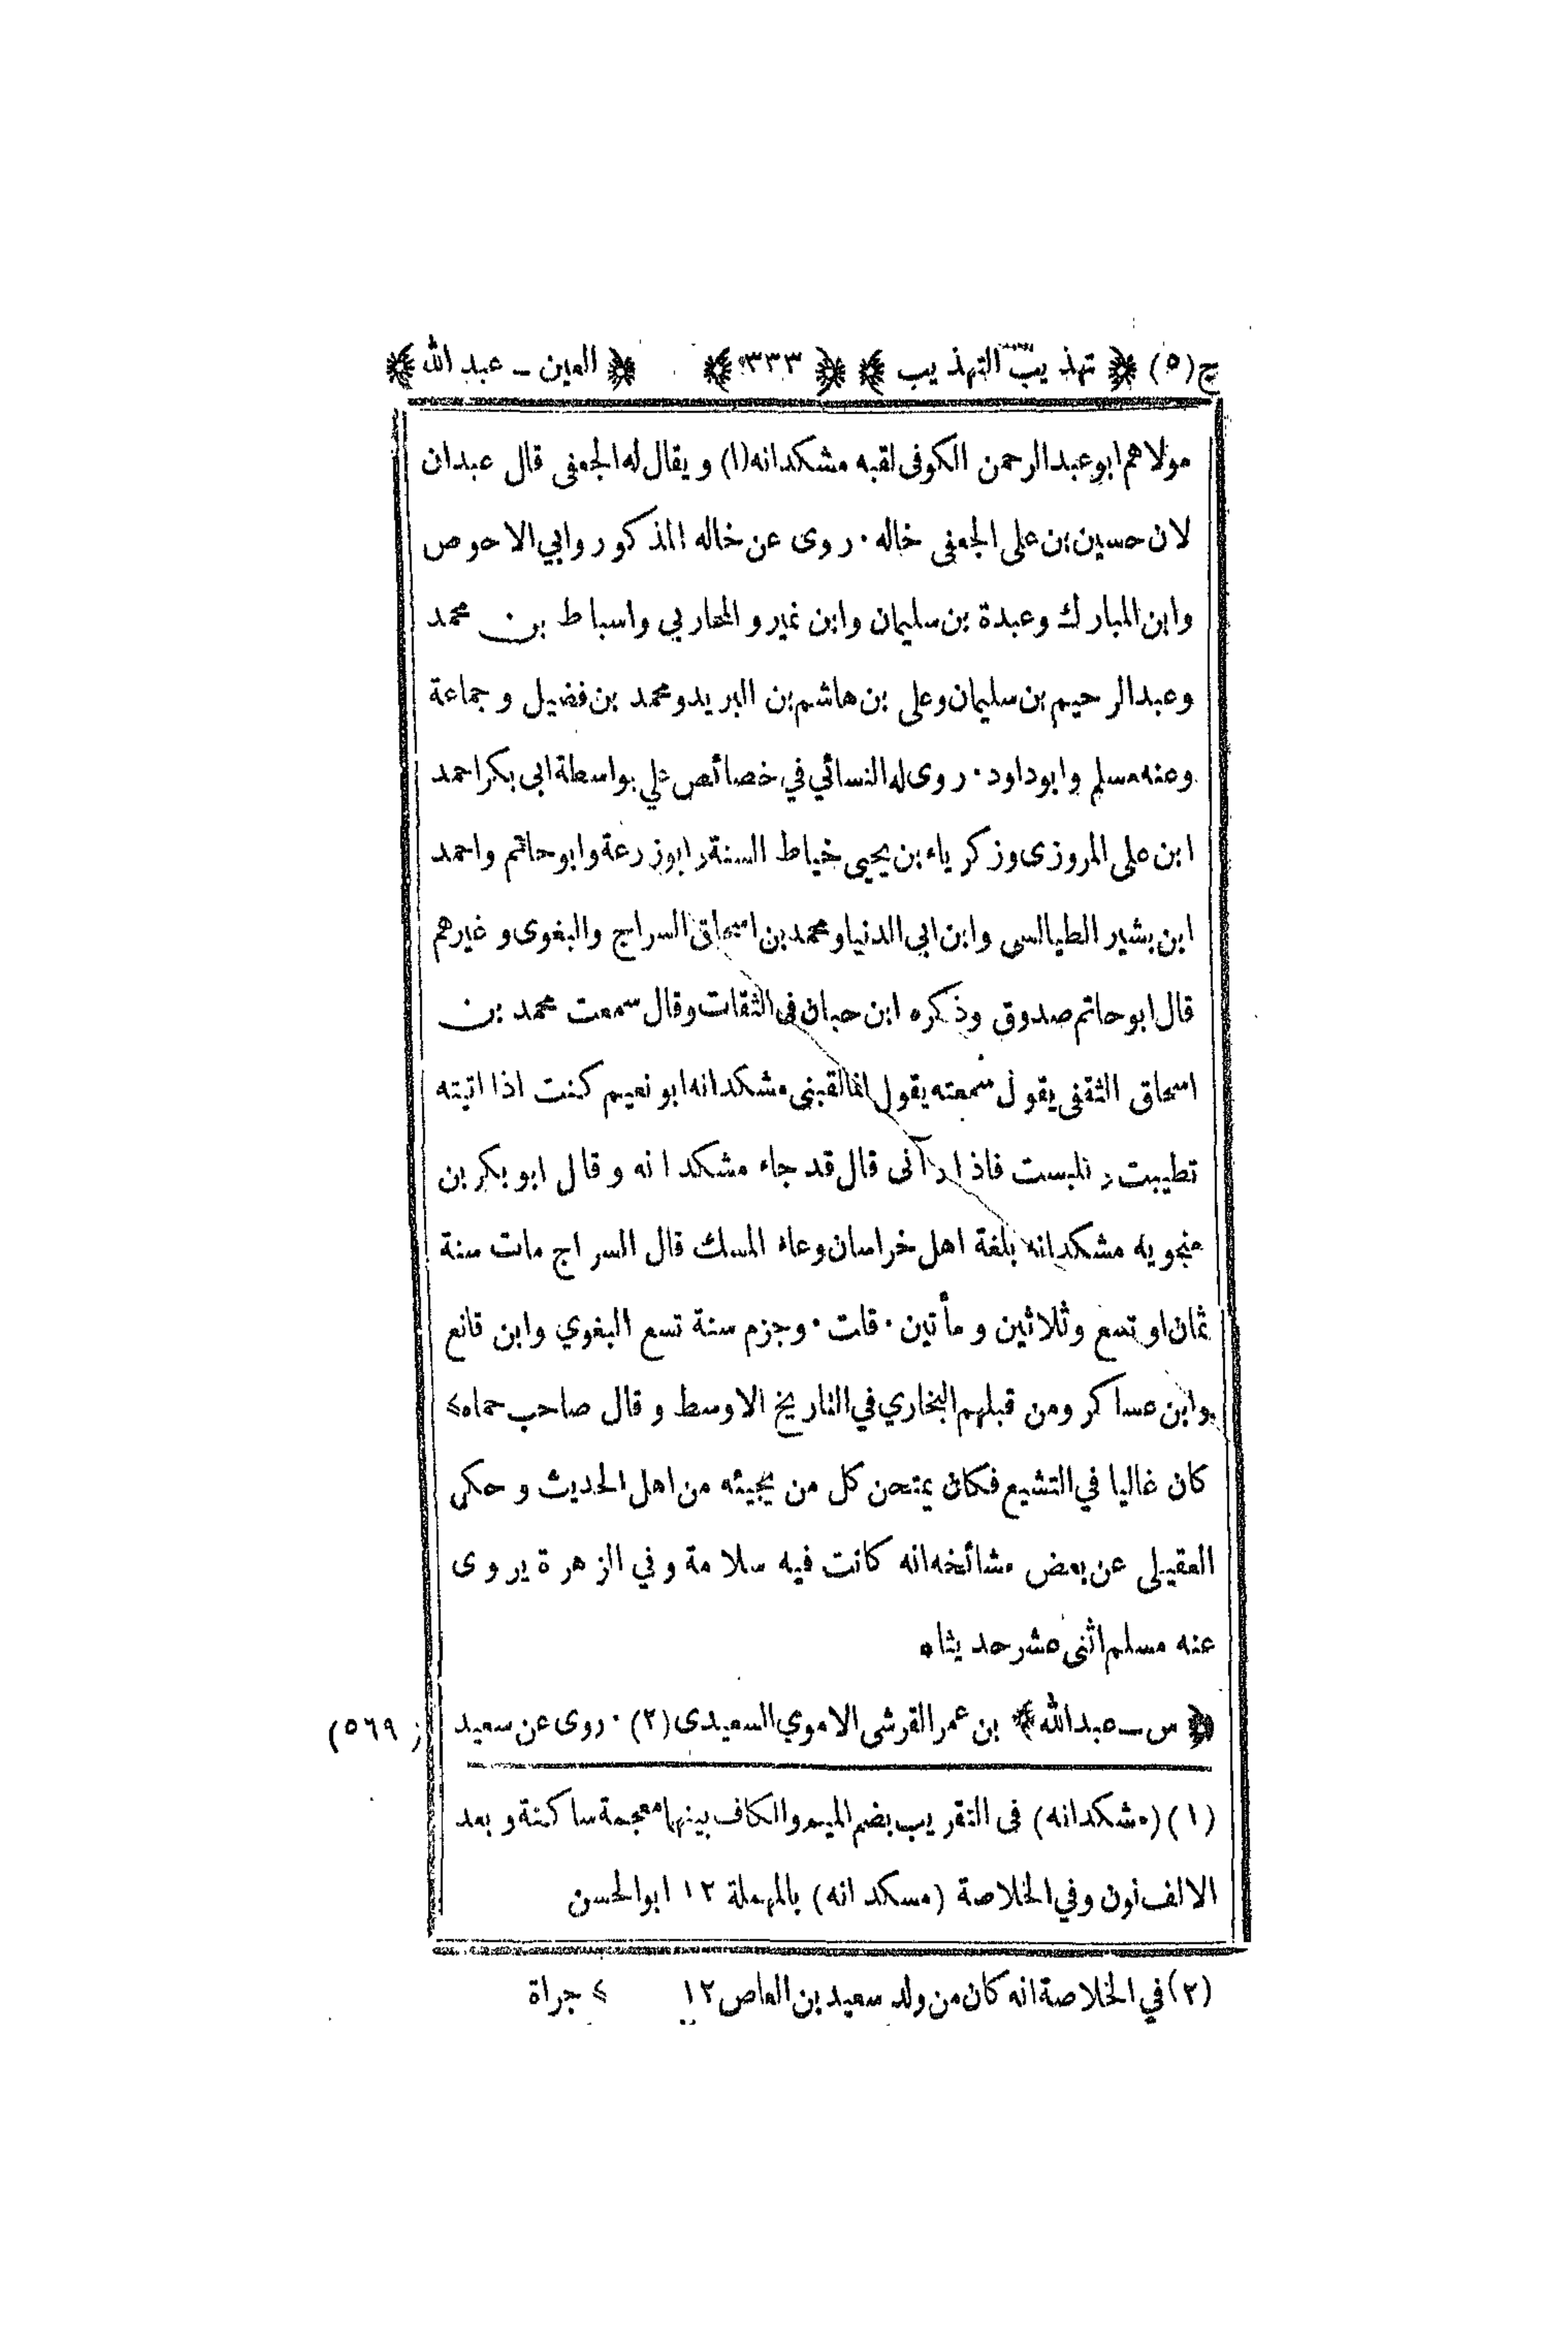 ج (٥) ﴿ تهذيب التهذيب ﴾ ﴿ ٣٣٣ ﴾ ﴿ العين ـ عبد الله ﴾
مولاهم ابو عبد الرحمن الكوفى لقبه مشكدانه (١) و يقال له الجعفى قال عبدان
لان حسين بن على الجعفى خاله · روى عن خاله المذكور وابي الاحوص
وابن المبارك وعبدة بن سليمان وابن نمير و المحاربي واسباط بن محمد
وعبد الرحيم بن سليمان وعلى بن هاشم بن البريد ومحمد بن فضيل و جماعة
وعنه مسلم وابو داود · روى له النسائي في خصائص علي بواسطة ابى بكر احمد
ابن على المروزى وزكرياء بن يحيى خياط السنة وابو زرعة وابو حاتم واحمد
ابن بشير الطيالسى وابن ابي الدنيا ومحمد بن اسحاق السراج والبغوى و غيرهم
قال ابو حاتم صدوق وذكره ابن حبان فى الثقات وقال سمعت محمد بن
اسحاق الثقفى يقول سمعته يقول انما لقبنى مشكدانه ابو نعيم كنت اذا اتيته
تطيبت و تلبست فاذا رآنى قال قد جاء مشكدانه و قال ابو بكر بن
منجويه مشكدانه بلغة اهل خراسان وعاء المسك قال السراج مات سنة
ثمان او تسع وثلاثين و مأتين · قلت · وجزم سنة تسع البغوي وابن قانع
وابن عساكر ومن قبلهم البخاري في التاريخ الاوسط و قال صاحب حماه>
كان غاليا في التشيع فكان يمتحن كل من يجيئه من اهل الحديث و حكى
العقيلى عن بعض مشائخه انه كانت فيه سلامة و في الزهرة يروى
عنه مسلم اثنى عشر حديثا *
﴿ س ـ عبد الله ﴾ بن عمر القرشى الاموي السعيدى (٢) · روى عن سعيد
(٥٦٩)
(١) (مشكدانه) فى التقريب بضم الميم والكاف بينهما معجمة ساكنة و بعد
الالف نون و في الخلاصة (مسكدانه) بالمهملة ١٢ ابو الحسن
(٢) في الخلاصة انه كان من ولد سعيد بن العاص ١٢ > جراة